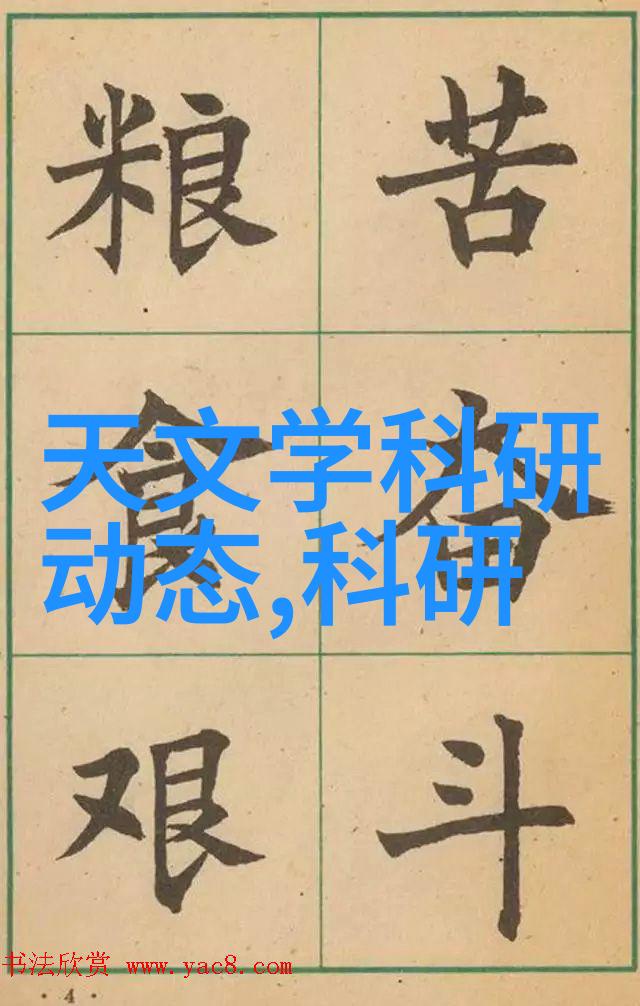 粮食艰
苦奋斗
天文学科研
动态,科研
书法欣赏 www.yac8.com
· 4 ·